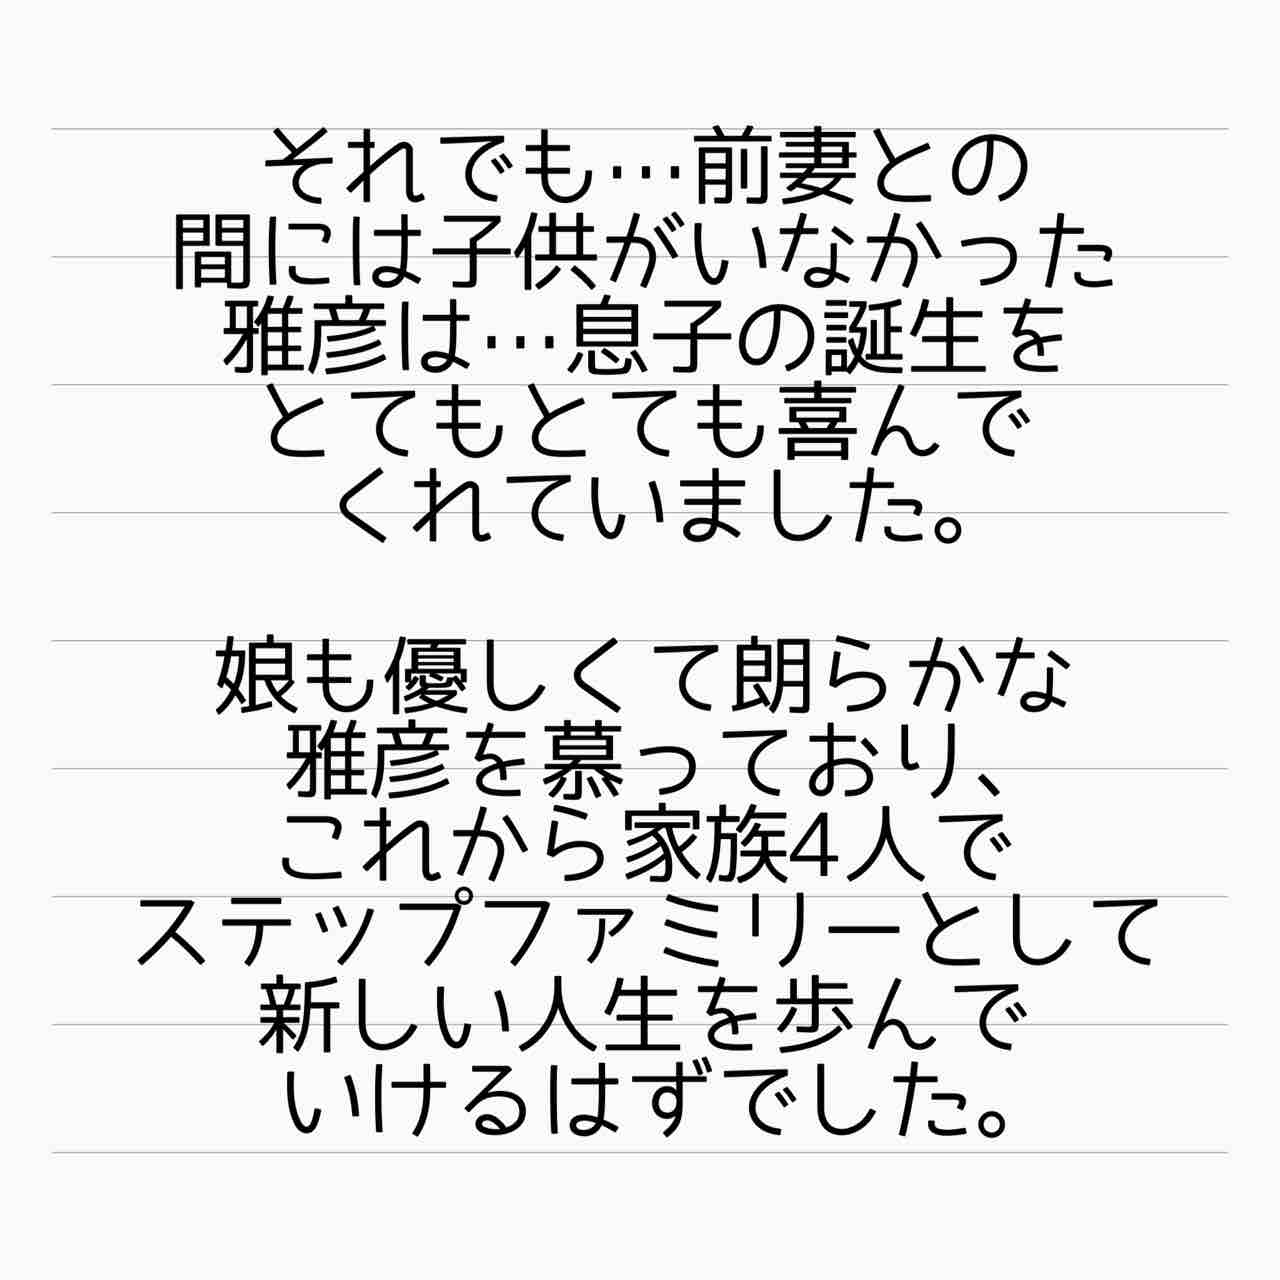 それでも…前妻との
間には子供がいなかった
雅彦は…息子の誕生を
とてもとても喜んで
くれていました。
娘も優しくて朗らかな
雅彦を慕っており、
これから家族4人で
ステップファミリーとして
新しい人生を歩んで
いけるはずでした。